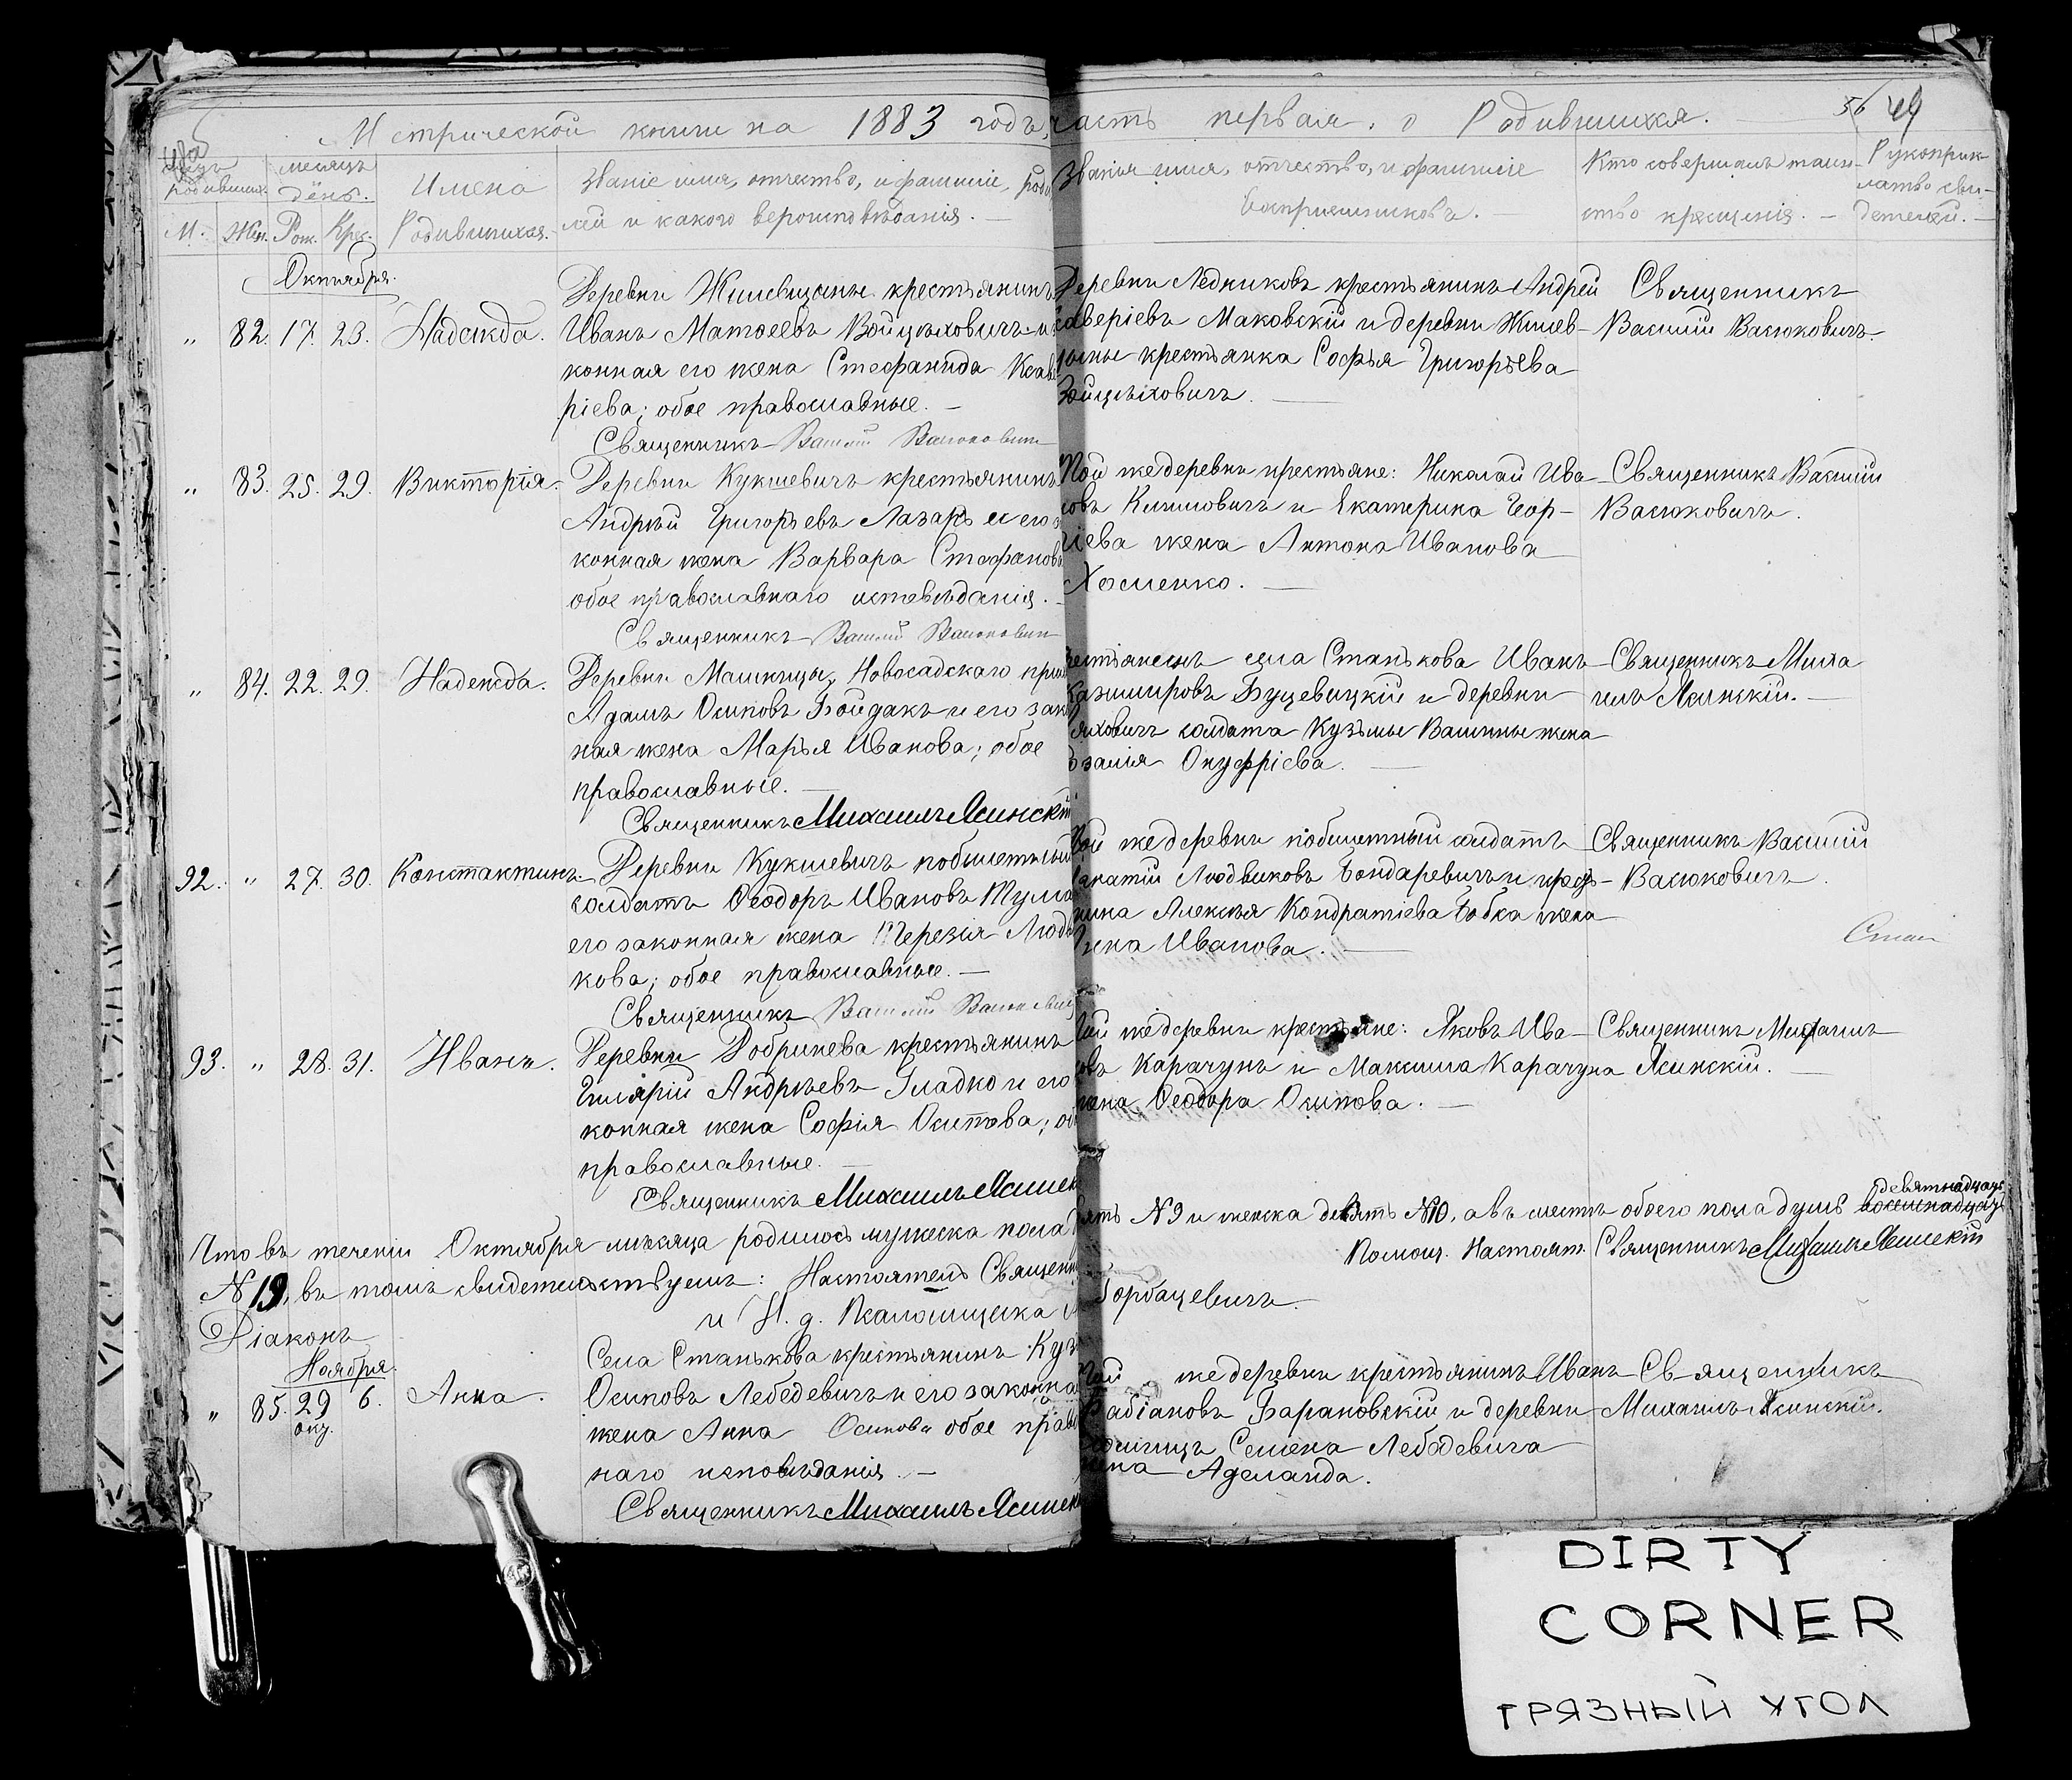 Метрической книги на 1883 годъ, часть первая, о Родившихся.
56 49
родивших.
месяцъ
день.
Имена
Званіе имя, отчество, и фамиліе, роди
Званія имя, отчество, и фамиліе
Кто совершалъ таин-
Рукоприк-
М. Жен. Рож. Крес. Родившихся.
лей и какого вероисповѣданія. —
Воспріемниковъ. —
ство крещенія. —
латво сви-
детелей. —
Октября.
Деревни Жилевщины крестьянинъ
82. 17. 23. Надежда. Иванъ Матѳеевъ Войцѣховичъ и
конная его жена Стефанида Ксаве
ріева; обое православные. —
Священникъ Василій Васюковичъ
Деревни Ледниковъ крестьянинъ Андрей
Ксаверіевъ Маковскій и деревни Жилев-
щины крестьянка Софья Григорьева
Войцѣховичъ. —
Священникъ
Василій Васюковичъ.
83. 25. 29. Викторія. Деревни Кукшевичъ крестьянинъ
Андрей Григорьевъ Лазарь и его за
конная жена Варвара Стефанова
обое православнаго исповѣданія. —
Священникъ Василій Васюковичъ
Той же деревни крестьяне: Николай Ива-
новъ Климовичъ и Екатерина Геор-
гіева жена Антона Иванова
Хоменко. —
Священникъ Василій
Васюковичъ.
84. 22. 29. Надежда. Деревни Машницы, Новосадскаго прих
Адамъ Осиповъ Бойдакъ и его закон
ная жена Марья Иванова; обое
православные. —
Священникъ Михаилъ Ясинскій
крестьянинъ села Станькова Иванъ
Казимировъ Буцевицкій и деревни
солдата Кузьмы Вашины жена
Розалія Онуфріева. —
Священникъ Миха
илъ Ясинскій. —
92. " 27. 30. Константинъ. Деревни Кукшевичъ побилетный
солдатъ Ѳеодоръ Ивановъ
его законная жена Терезія Людви
кова; обое православные. —
Священникъ Василій Васюковичъ
Той же деревни побилетный солдатъ
Игнатій Людвиковъ Бондаревичъ и крестья
нина Алексѣя Кондратіева Бобка жена
Иванова. —
Священникъ Василій
Васюковичъ.
93. " 28. 31. Иванъ. Деревни Добринева крестьянинъ
Гиляріи Андреевъ Гладко и его
конная жена Софія Осипова; об
православные. —
Священникъ Михаилъ Ясинск
Той же деревни крестьяне: Яковъ Ива-
новъ Карачунъ и Максима Карачуна
жена Ѳеодора Осипова. —
Священникъ Михаилъ
Ясинскій. —
Что въ теченіи Октября мѣсяца родилось мужеска пола девять №9 и женска девять №10, а въ месть обоего пола душъ восемнадцать
девятнадцать
№ 19, въ томъ свидетельствуемъ: Настоятель Священн
Помощ. Настоят. Священникъ Михаилъ Ясинскій
и И. д. Псаломщика Горбацевичъ.
Діаконъ
Ноября.
" 85. 29 6. Анна.
окт.
Села Станькова крестьянинъ Кузь
Осиповъ Лебедевичъ и его законная
жена Анна Осипова обое правос
наго исповѣданія. —
Священникъ Михаилъ Ясинск
Той же деревни крестьянинъ Иванъ
Фабіановъ Барановскій и деревни
Семена Лебедевича
жена Аделаида.
Священникъ
Михаилъ Ясинскій.
DIRTY
CORNER
ГРЯЗНЫЙ УГОЛ